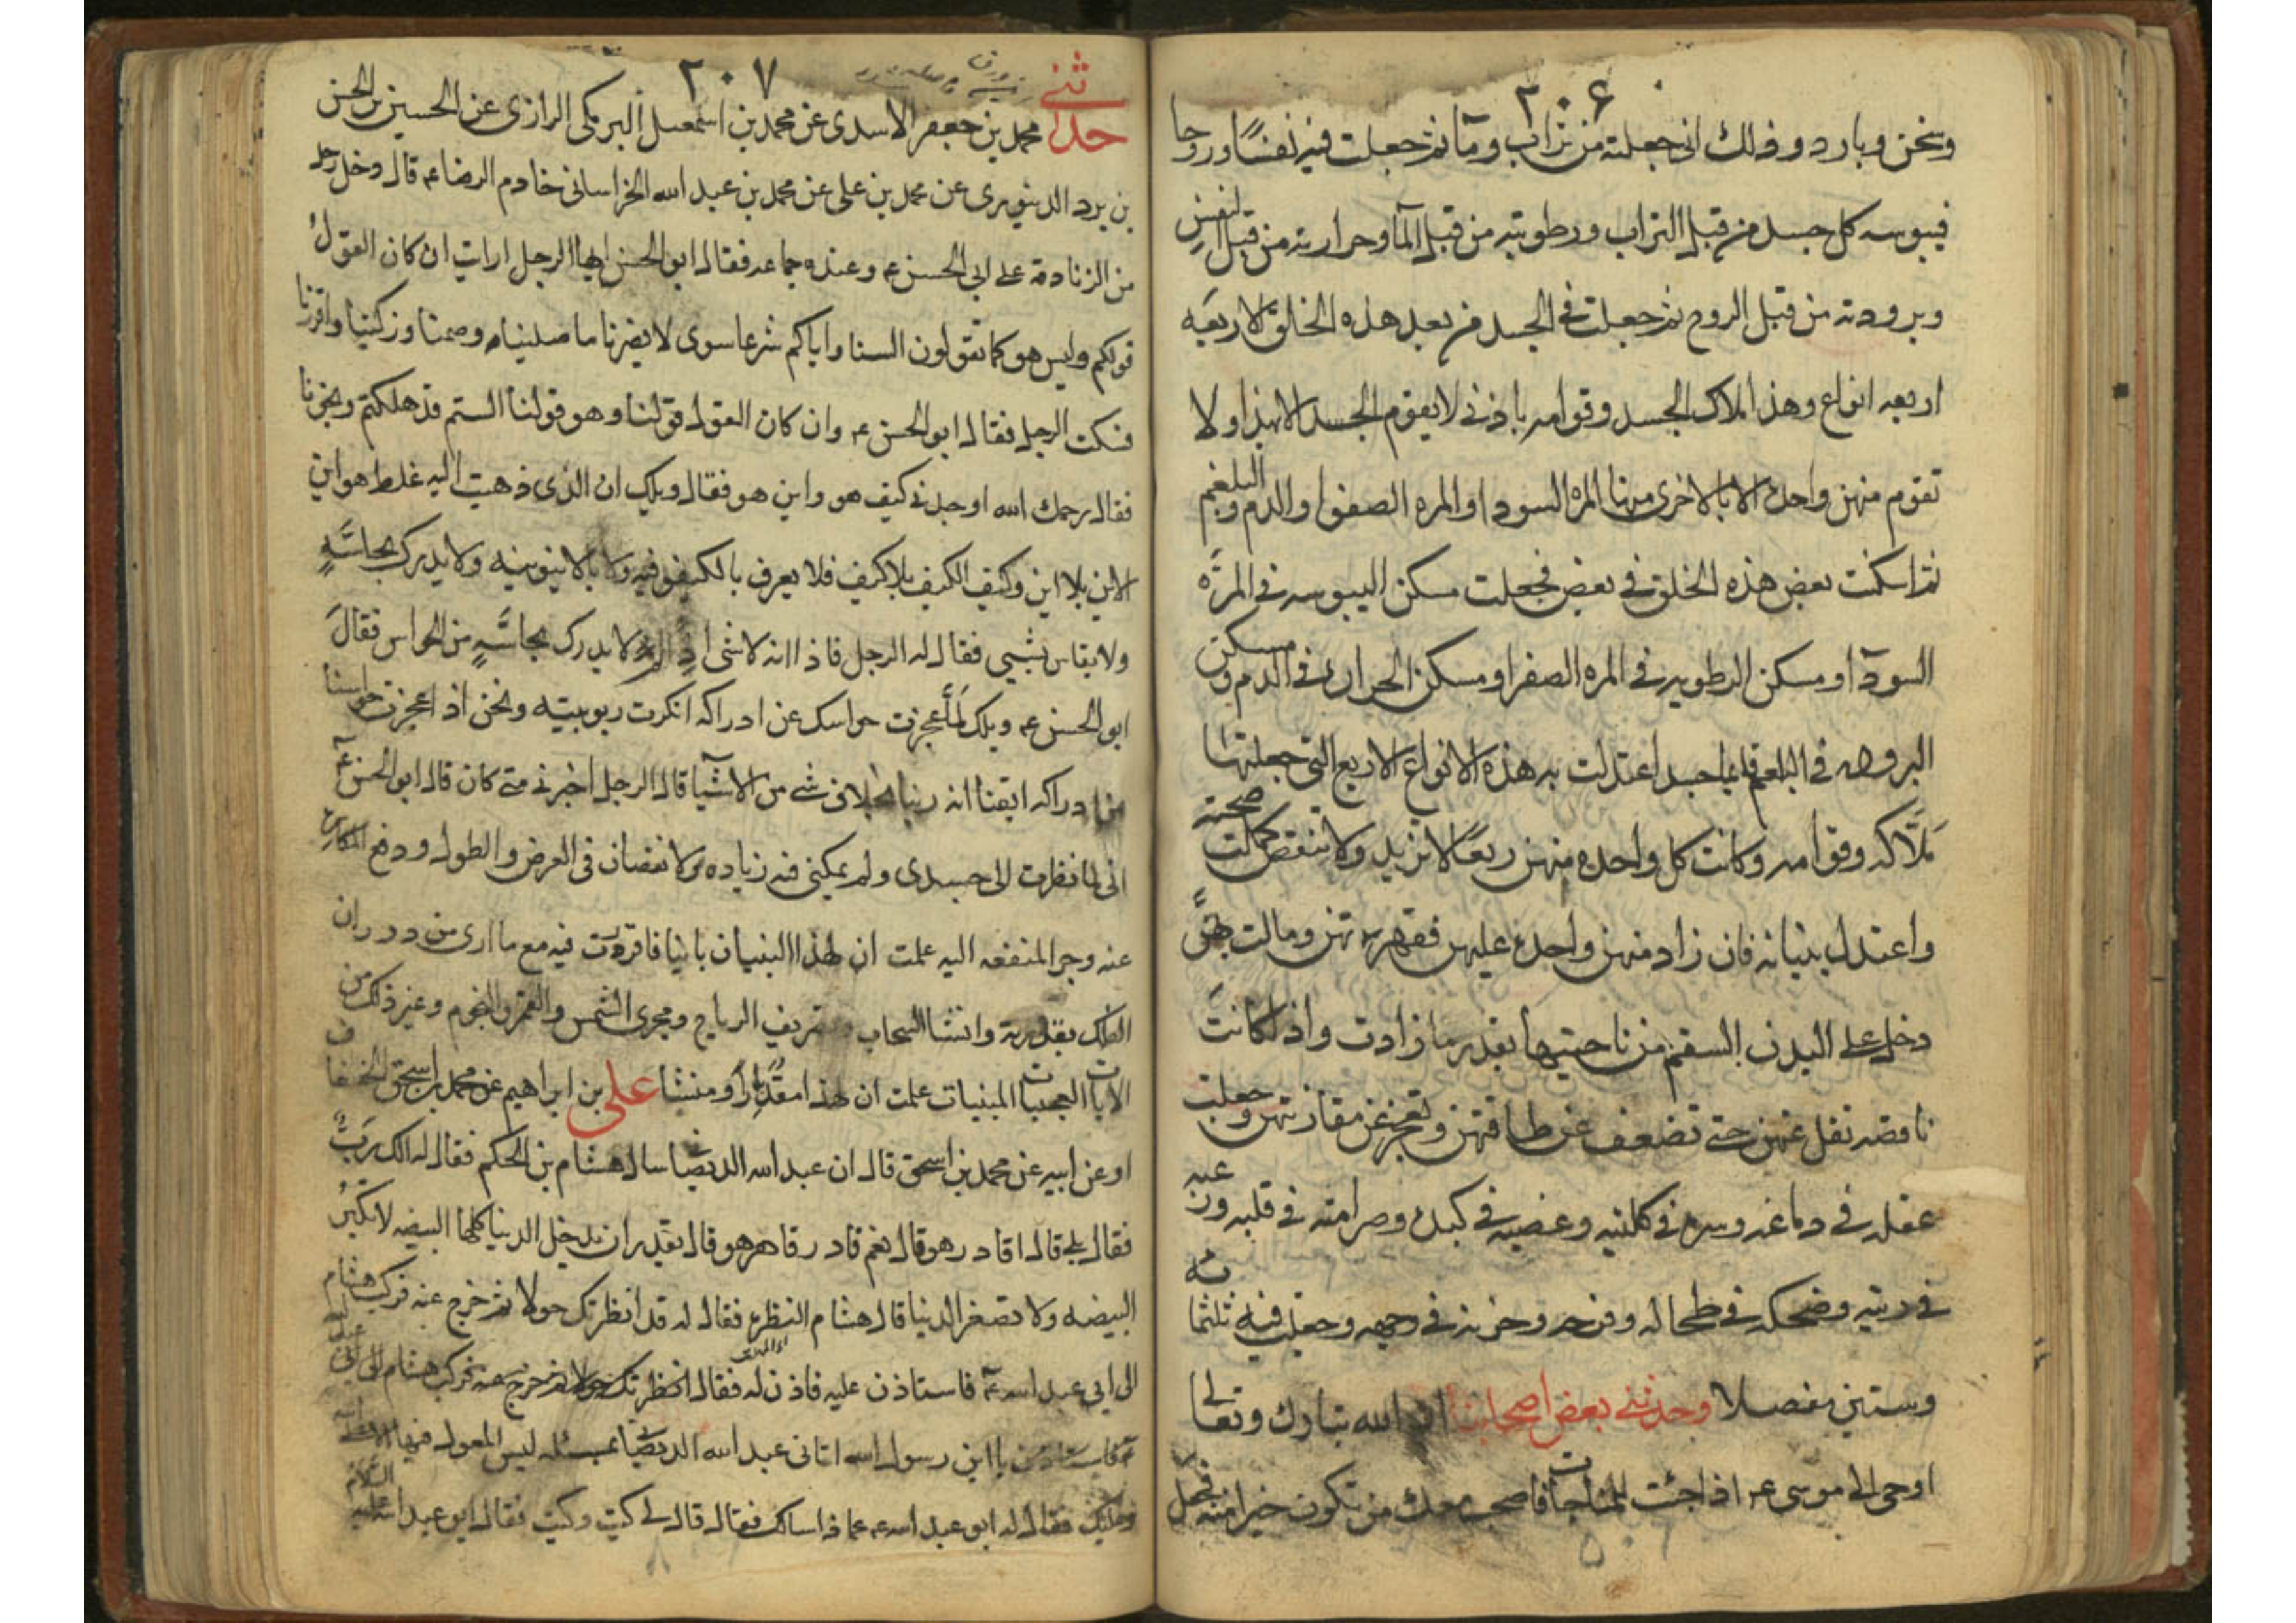 ٢٠۶
وسخن وبارد وذلك انى جعلته من تراب ومآ ثم جعلت فيه نفسًا وروحا
فيبوسه كل جسد من قبل التراب ورطوبته من قبل المآ وحرارته من قبل النفس
وبرودته من قبل الروح ثم جعلت فى الجسد من بعد هذه الخلق الاربعَه
اربعه انواع وهذا ملاك الجسد وقوامه باذنى لا يقوم الجسد الا بهذا ولا
تقوم منهن واحدة الا بالاخرى منها المره السودا والمره الصفرا والدم والبلغم
ثم اسكنت بعض هذه الخلق فى بعض فجعلت مسكن اليبوسه فى المرّه
السودآ ومسكن الرطوبه فى المره الصفرا ومسكن الحرارة فى الدم ومسكن
البروده فى البلغم فايما جسد اعتدلت به هذه الانواع الاربع التى جعلتها
ملاكه وقوامه وكانت كل واحده منهن ربعًا لا تزيد ولا تنقص كملت صحته
واعتدل بنيانه فان زاد منهن واحدة عليهن فقهرتهن ومالت بهنَّ
دخل على البدن السقم من ناحيتها بقدر ما زادت واذا كانت
ناقصه تقل عنهن حتى تضعف عن طاقتهن وتعجز عن مقارنتهن وجعلت
عقله فى دماغه وسره فى كليتيه وغضبه فى كبده وصرامته فى قلبه ورعبه
فى ريته وضحكه فى طحاله وفرحه وحزنه فى وجهه وجعلت فيه ثلثمائة
وستين مفصلا وحدثنى بعض اصحابنا ان الله تبارك وتعالى
اوحى الى موسى ع اذا جئت للمناجات فاصحب معك من تكون خيرا منه فجعل
٢٠٧
حدثنى محمد بن جعفر الاسدى عن محمد بن اسمعيل البرمكى الرازى عن الحسين بن الحسن
بن برد الدينورى عن محمد بن على عن محمد بن عبد الله الخراسانى خادم الرضا ع قال دخل رجل
من الزنادقة على ابى الحسن ع وعنده جماعه فقال ابو الحسن ايها الرجل ارايت ان كان القول
قولكم وليس هو كما تقولون السنا واياكم شرعا سوى لا يضرنا ما صلينا وصمنا وزكينا واقررنا
فسكت الرجل فقال ابو الحسن ع وان كان القول قولنا وهو قولنا الستم قد هلكتم ونجونا
فقال رحمك الله اوجدنى كيف هو واين هو فقال ويلك ان الذى ذهبت اليه غلط هو اين
الاين بلا اين وكيف الكيف بلا كيف فلا يعرف بالكيفوفيه ولا بالاينونيه ولا يدرك بحاسَّهٍ
ولا يقاس بشيى فقال له الرجل فاذا انه لا شى اذ لم لا يدرك بحاسَّهٍ من الحواس فقالَ
ابو الحسن ع ويلك لمّا عجزت حواسك عن ادراكه انكرت ربوبيته ونحن اذا عجزت حواسنا
عن ادراكه ايقنا انه ربنا بخلاف شى من الاشيآ قال الرجل اخبرنى متى كان قال ابو الحسن ع
انى لما نظرت الى جسدى ولم يمكنى فيه زياده ولا نقصان فى العرض والطول ودفع المكاره
عنه وجر المنفعه اليه علمت ان لهذا البنيان بانيا فاقررت فيه مع ما ارى من دوران
الفلك بقدرته وانشا السحاب وتصريف الرياح ومجرى الشمس والقمر والنجوم وغير ذلك من
الايات العجيبات المبينات علمت ان لهذا مقدرًا ومنشا على بن ابراهيم عن محمد بن اسحق الخفاف
او عن ابيه عن محمد بن اسحق قال ان عبد الله الديصانى سال هشام بن الحكم فقال له الك ربٌّ
فقال بلى قال اقادر هو قال نعم قادر قاهر هو قال يقدر ان يدخل الدنيا كلها البيضه لا تكبرُ
البيضه ولا تصغر الدنيا قال هشام النظرة فقال له قد انظرتك حولا ثم خرج عنه فركب هشام
الى ابى عبد الله ع فاستاذن عليه فاذن له فقال
يا ابن رسول الله اتانى عبد الله الديصانى بمسئله ليس المعول فيها الا على الله
وعليك فقال له ابو عبد الله ع عما ذا سالك فقال قال لى كيت وكيت فقال ابو عبد الله عليه السلام